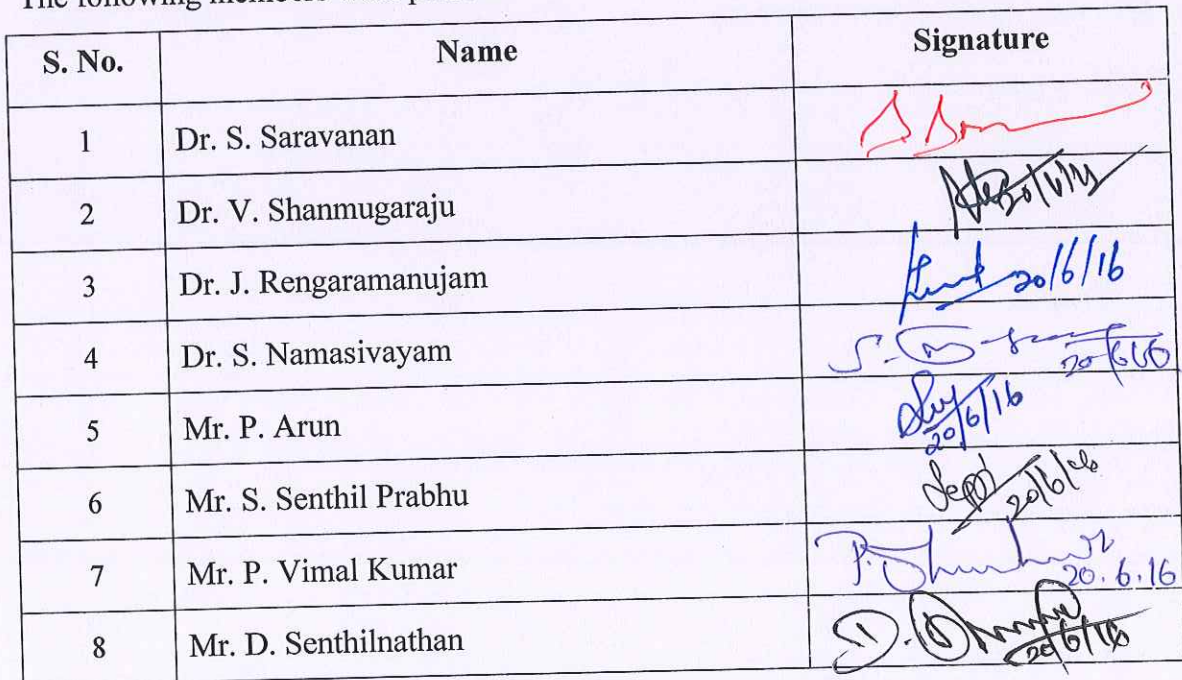 The following
S. No. Name Signature
1 Dr. S. Saravanan
2 Dr. V. Shanmugaraju
3 Dr. J. Rengaramanujam 20/6/16
4 Dr. S. Namasivayam 20/6/16
5 Mr. P. Arun 20/6/16
6 Mr. S. Senthil Prabhu 20/6/16
7 Mr. P. Vimal Kumar 20.6.16
8 Mr. D. Senthilnathan 20/6/16